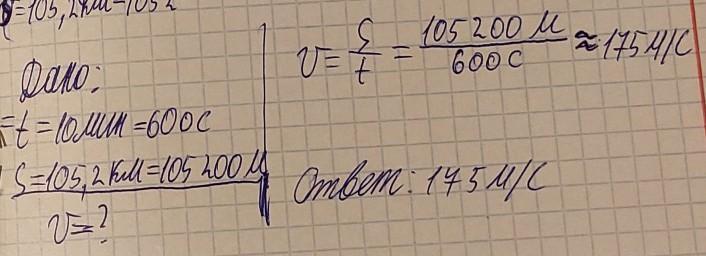 =105,2км=1052
Дано:
t=10мин=600с
S=105,2км=105 200м
v=?
v= S/t = 105 200 м/600с ≈175м/с
Ответ: 175м/с